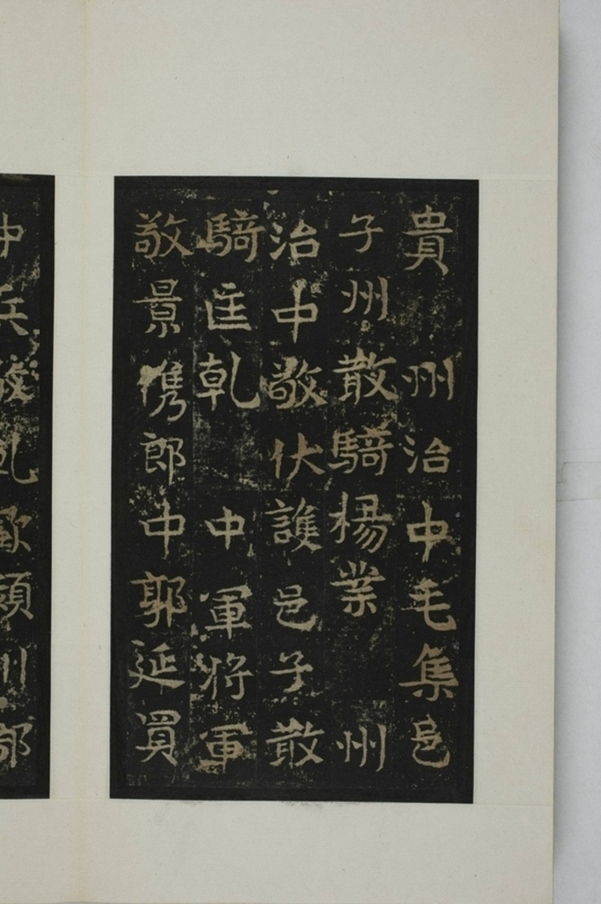 貴 州治中毛集邑
子州散騎楊業 州
治中敬伏護邑子散
騎匡乾 中軍將軍
敬景儁郎中郭延
中兵 頭川部